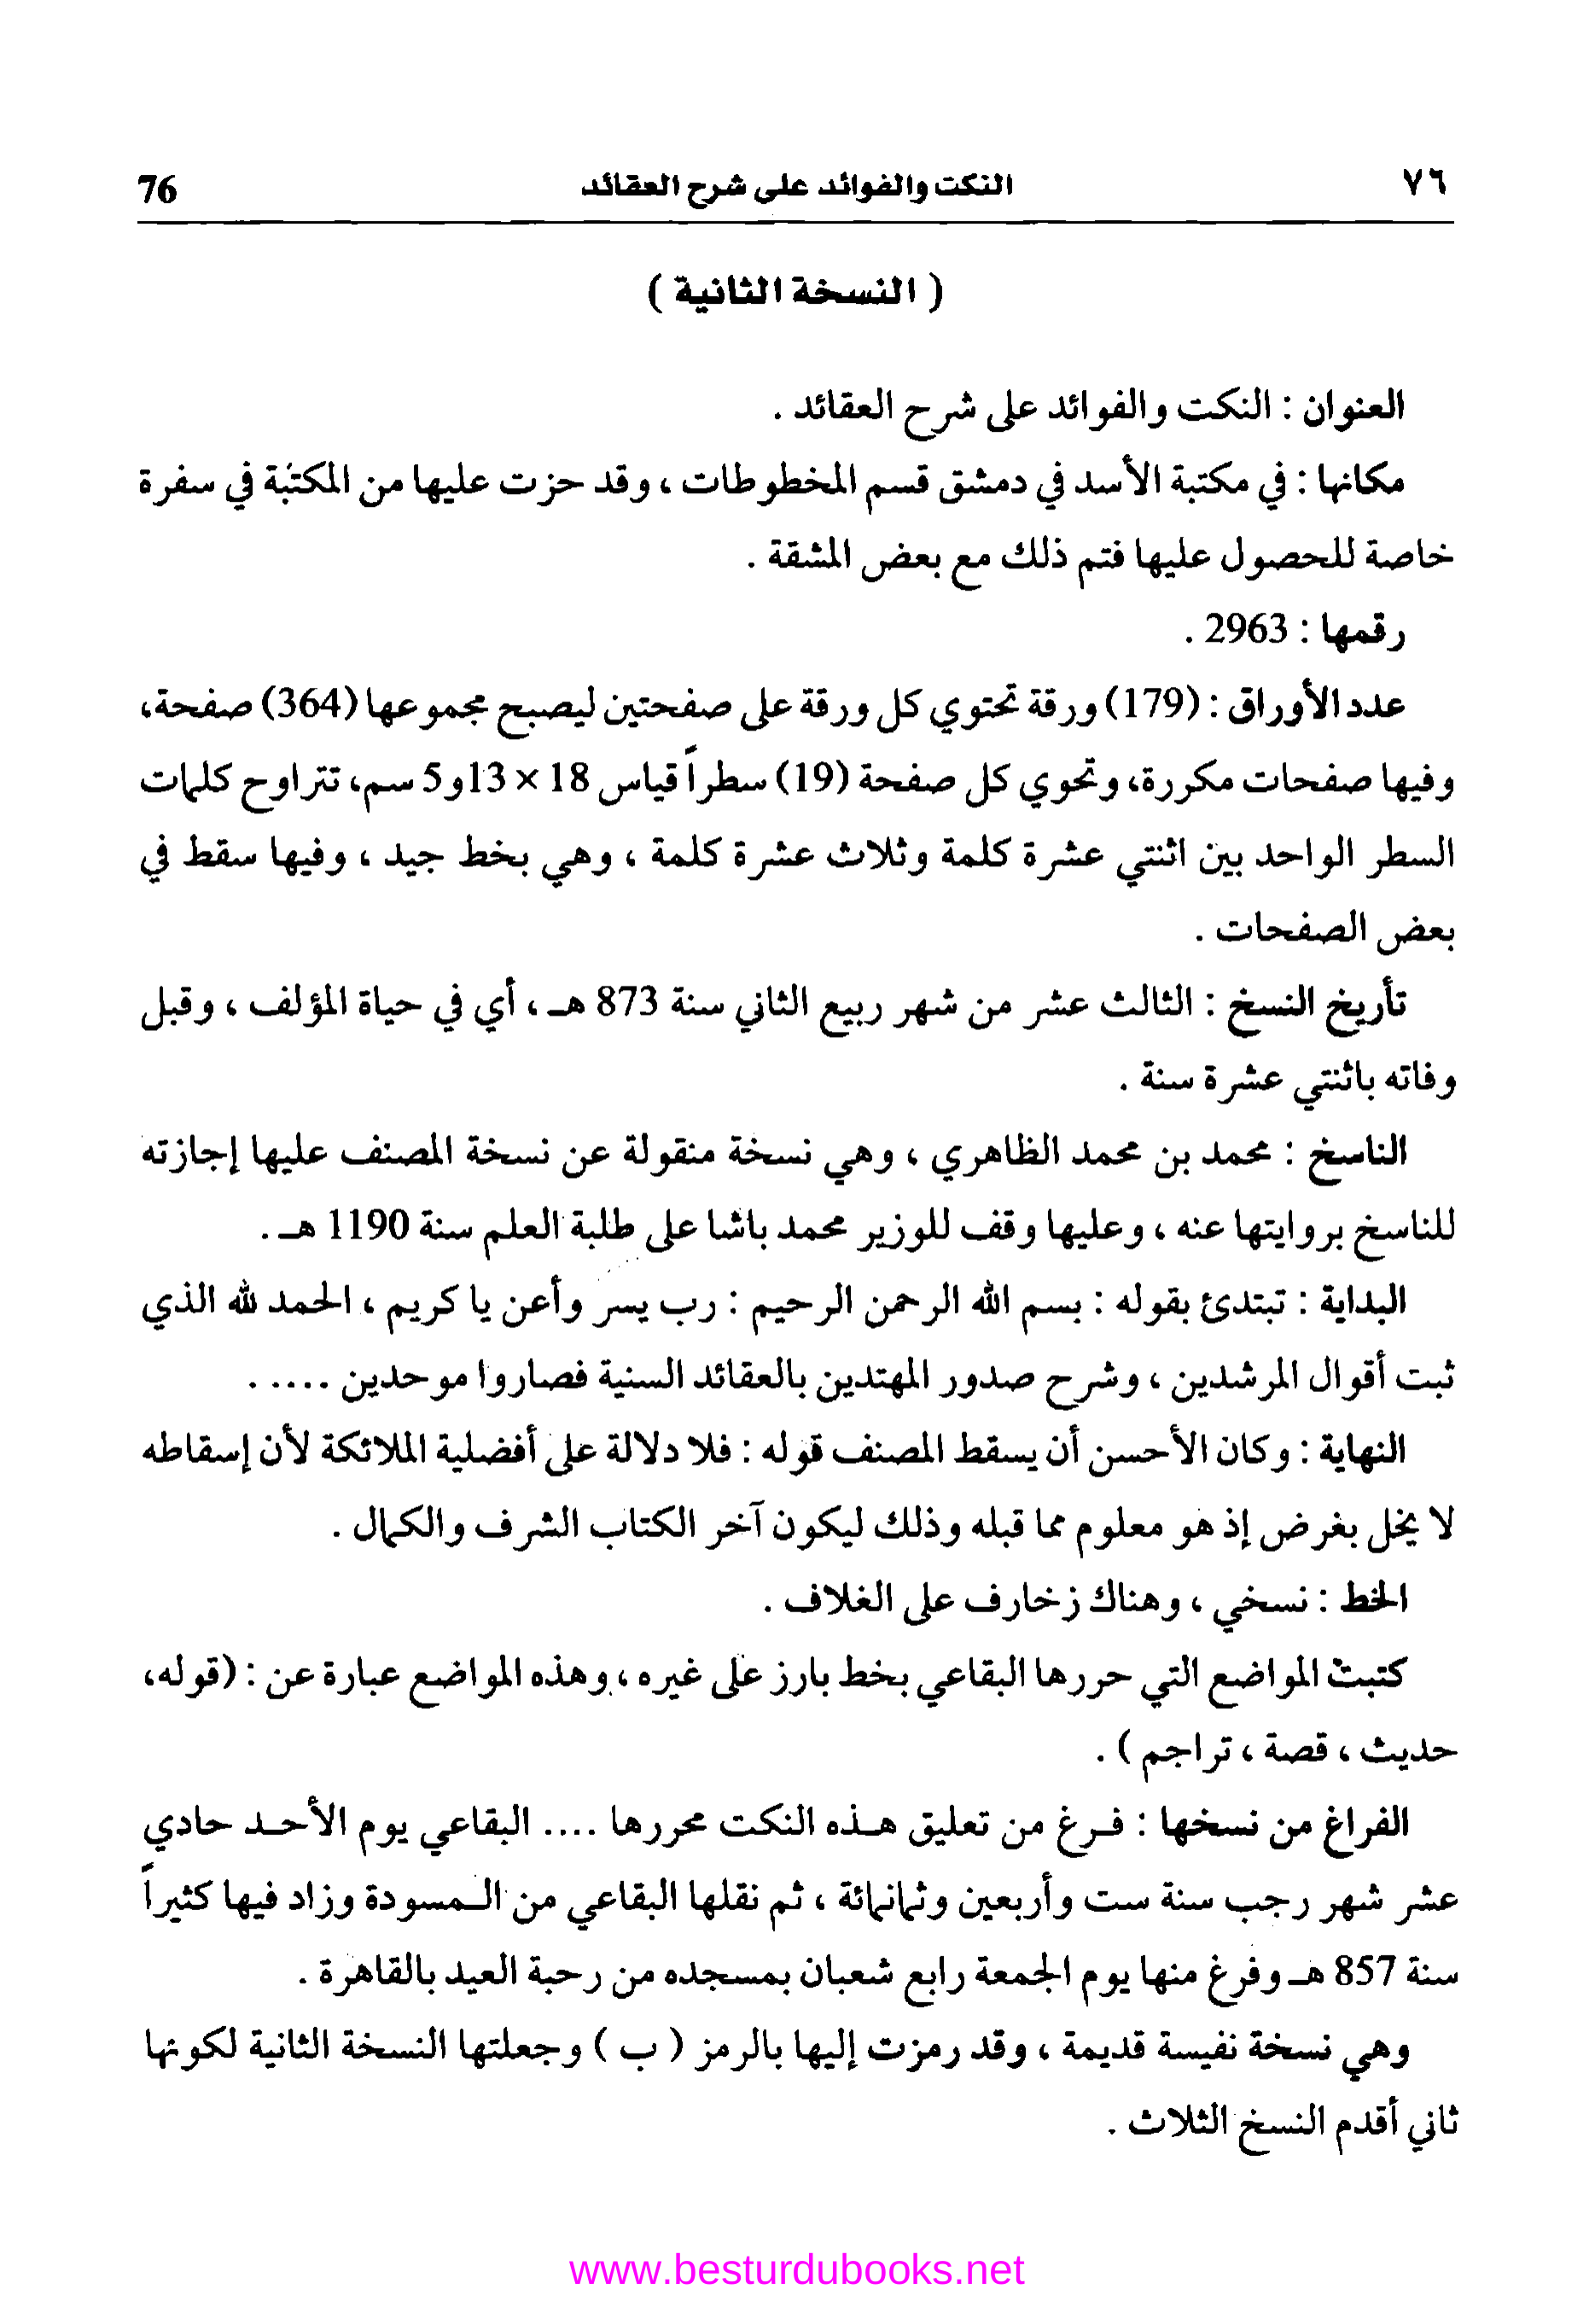 ٧٦ النكت والفوائد على شرح العقائد 76
( النسخة الثانية )
العنوان : النكت والفوائد على شرح العقائد .
مكانها : في مكتبة الأسد في دمشق قسم المخطوطات ، وقد حزت عليها من المكتبة في سفرة
خاصة للحصول عليها فتم ذلك مع بعض المشقة .
رقمها : 2963 .
عدد الأوراق : (179) ورقة تحتوي كل ورقة على صفحتين ليصبح مجموعها (364) صفحة،
وفيها صفحات مكررة، وتحوي كل صفحة (19) سطراً قياس 18 × 13و5 سم، تتراوح كلمات
السطر الواحد بين اثنتي عشرة كلمة وثلاث عشرة كلمة ، وهي بخط جيد ، وفيها سقط في
بعض الصفحات .
تأريخ النسخ : الثالث عشر من شهر ربيع الثاني سنة 873 هـ ، أي في حياة المؤلف ، وقبل
وفاته باثنتي عشرة سنة .
الناسخ : محمد بن محمد الظاهري ، وهي نسخة منقولة عن نسخة المصنف عليها إجازته
للناسخ بروايتها عنه ، وعليها وقف للوزير محمد باشا على طلبة العلم سنة 1190 هـ .
البداية : تبتدئ بقوله : بسم الله الرحمن الرحيم : رب يسر وأعن يا كريم ، الحمد لله الذي
ثبت أقوال المرشدين ، وشرح صدور المهتدين بالعقائد السنية فصاروا موحدين . . . . .
النهاية : وكان الأحسن أن يسقط المصنف قوله : فلا دلالة على أفضلية الملائكة لأن إسقاطه
لا يخل بغرض إذ هو معلوم مما قبله وذلك ليكون آخر الكتاب الشرف والكمال .
الخط : نسخي ، وهناك زخارف على الغلاف .
كتبت المواضع التي حررها البقاعي بخط بارز على غيره ، وهذه المواضع عبارة عن : (قوله،
حديث ، قصة ، تراجم ) .
الفراغ من نسخها : فـرغ من تعليق هـذه النكت محررها .... البقاعي يوم الأحـد حادي
عشر شهر رجب سنة ست وأربعين وثمانمائة ، ثم نقلها البقاعي من الـمسودة وزاد فيها كثيراً
سنة 857 هـ وفرغ منها يوم الجمعة رابع شعبان بمسجده من رحبة العيد بالقاهرة .
وهي نسخة نفيسة قديمة ، وقد رمزت إليها بالرمز ( ب ) وجعلتها النسخة الثانية لكونها
ثاني أقدم النسخ الثلاث .
www.besturdubooks.net